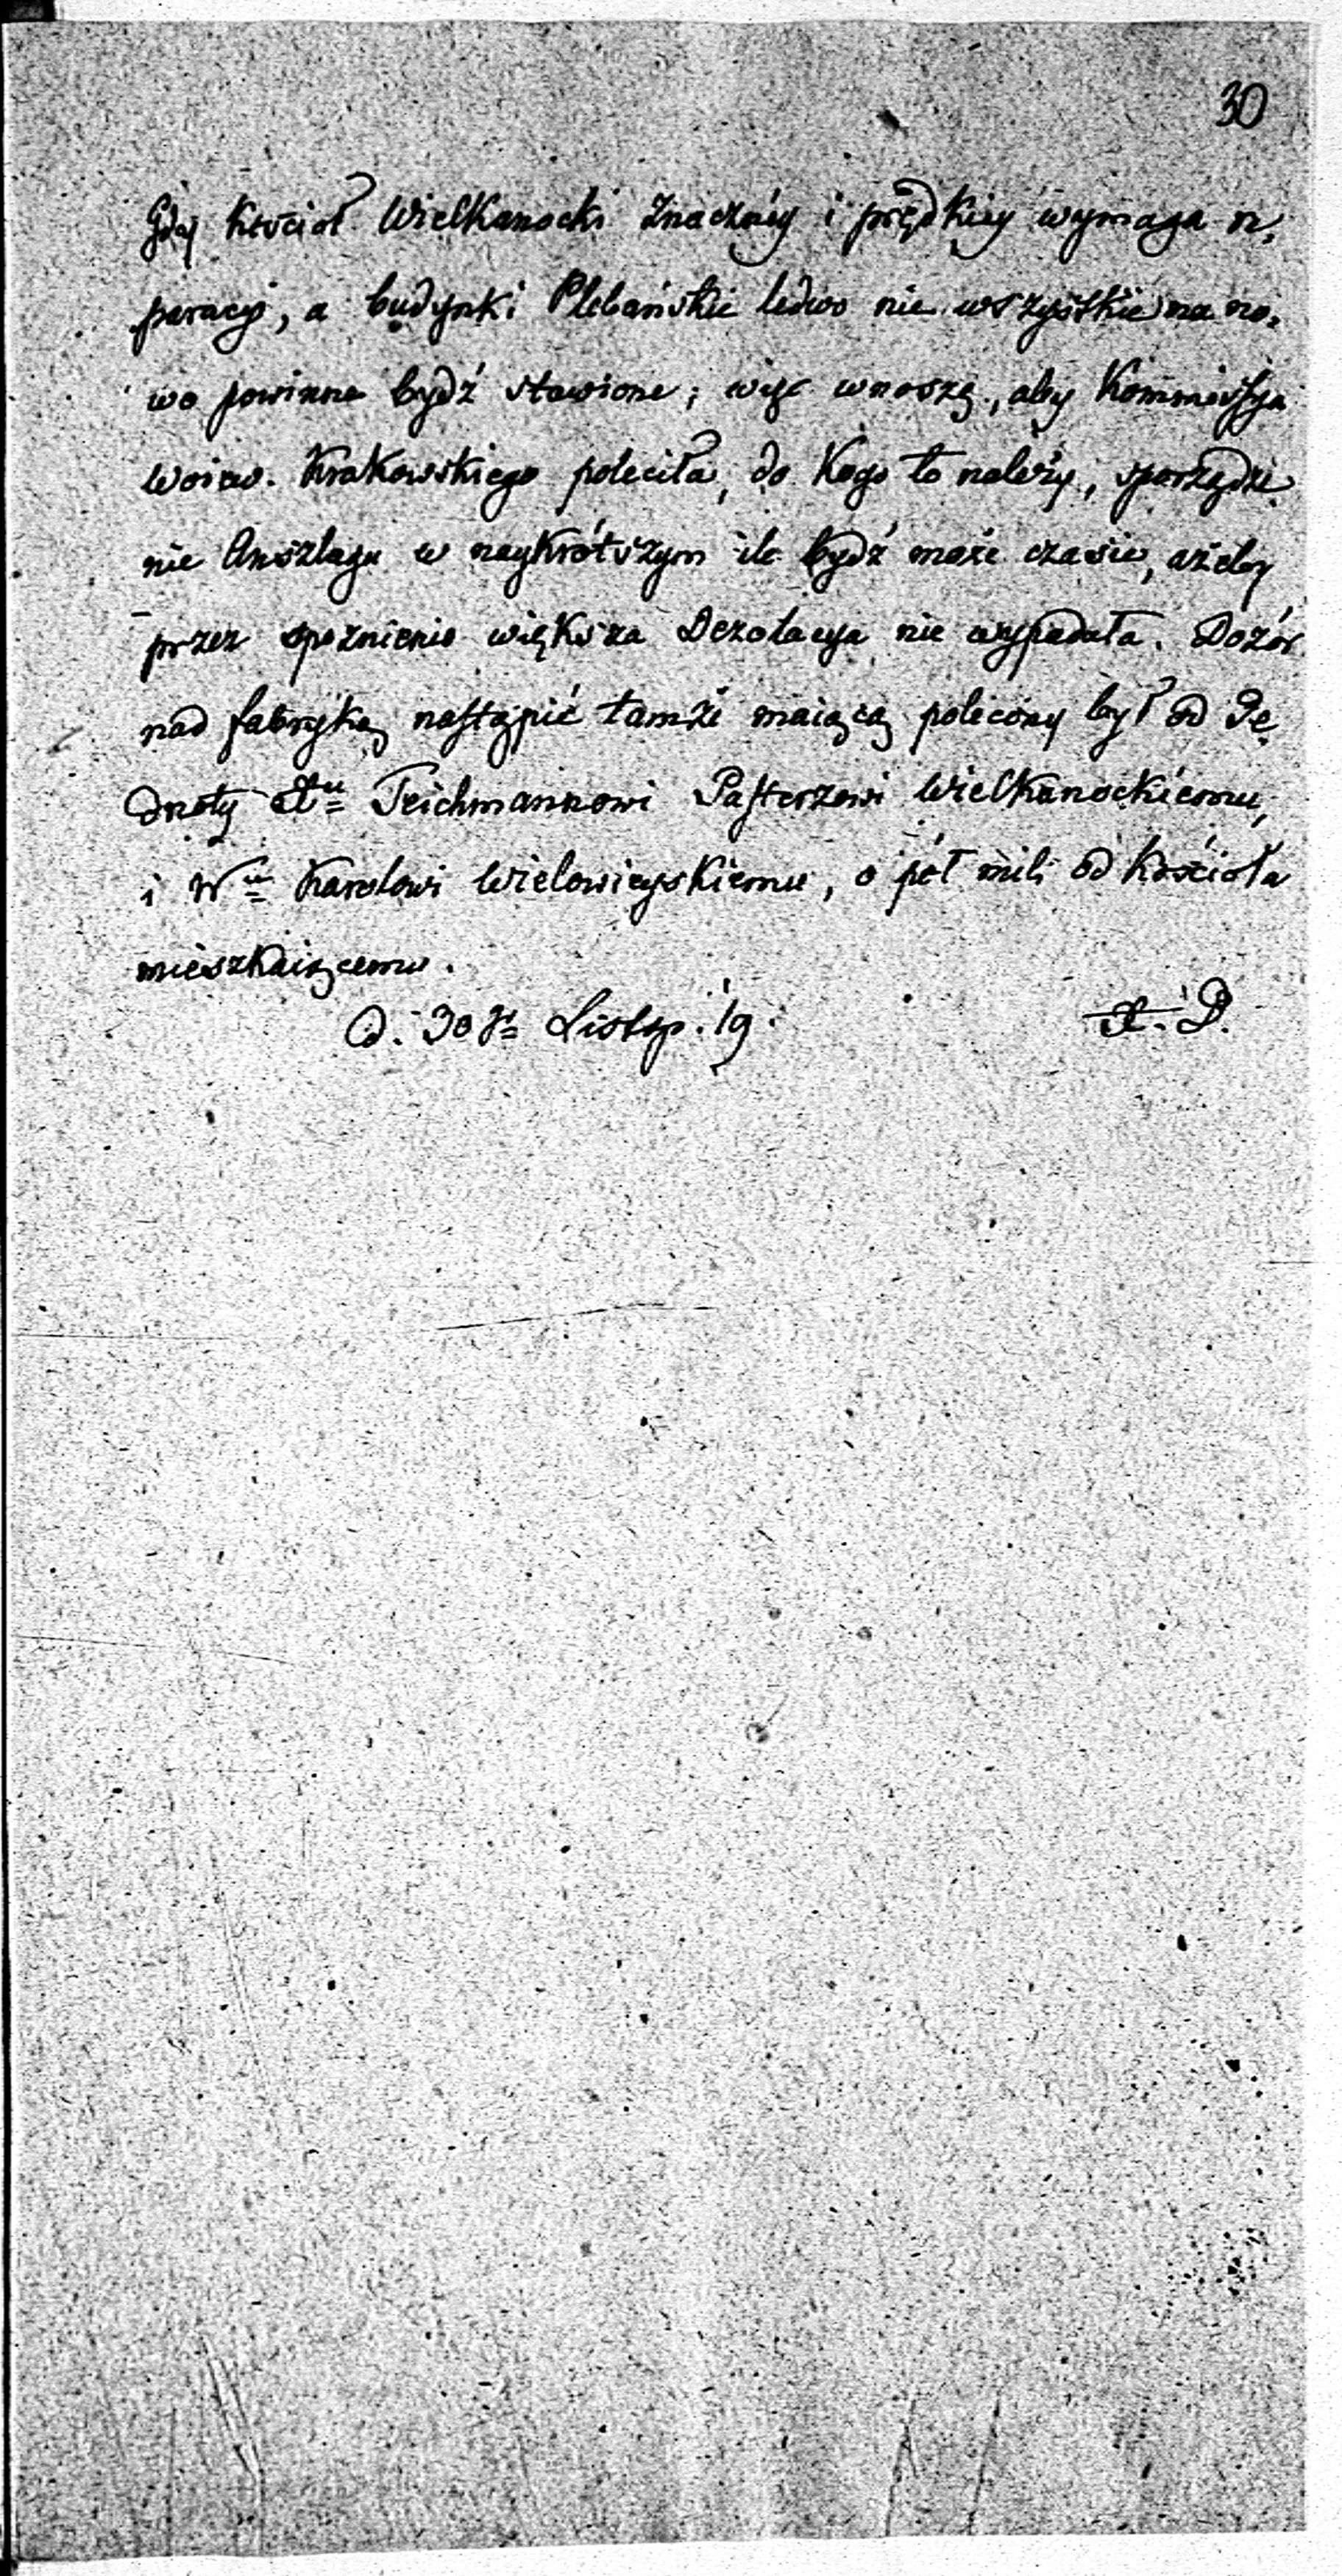 30
Gdy Kościoł Wielkanocki znacznéy i prędkiey wymaga re,
paracyi, a budynki Plebańskie ledwo nie wszystkie na no,
wo powinne bydź stawione; więc wnoszę, aby Kommissya
Woiew. Krakowskiego poleciła, do Kogo to należy, sporządze
nie Anszlagu w naykrótszym ile bydź może czasie, ażeby
przez spoźnienie większa Dezolacya nie wypadała. Dozór
nad fabryką nastąpić tamże maiącą polecony był od Je,
dnoty X.u Teichmannowi Pasterzowi Wielkanockiemu,
i W.u Karolowi Wielowieyskiemu, o pół mili od Kościoła
mieszkaiącemu.
d. 30 Listop. 19. X. D.